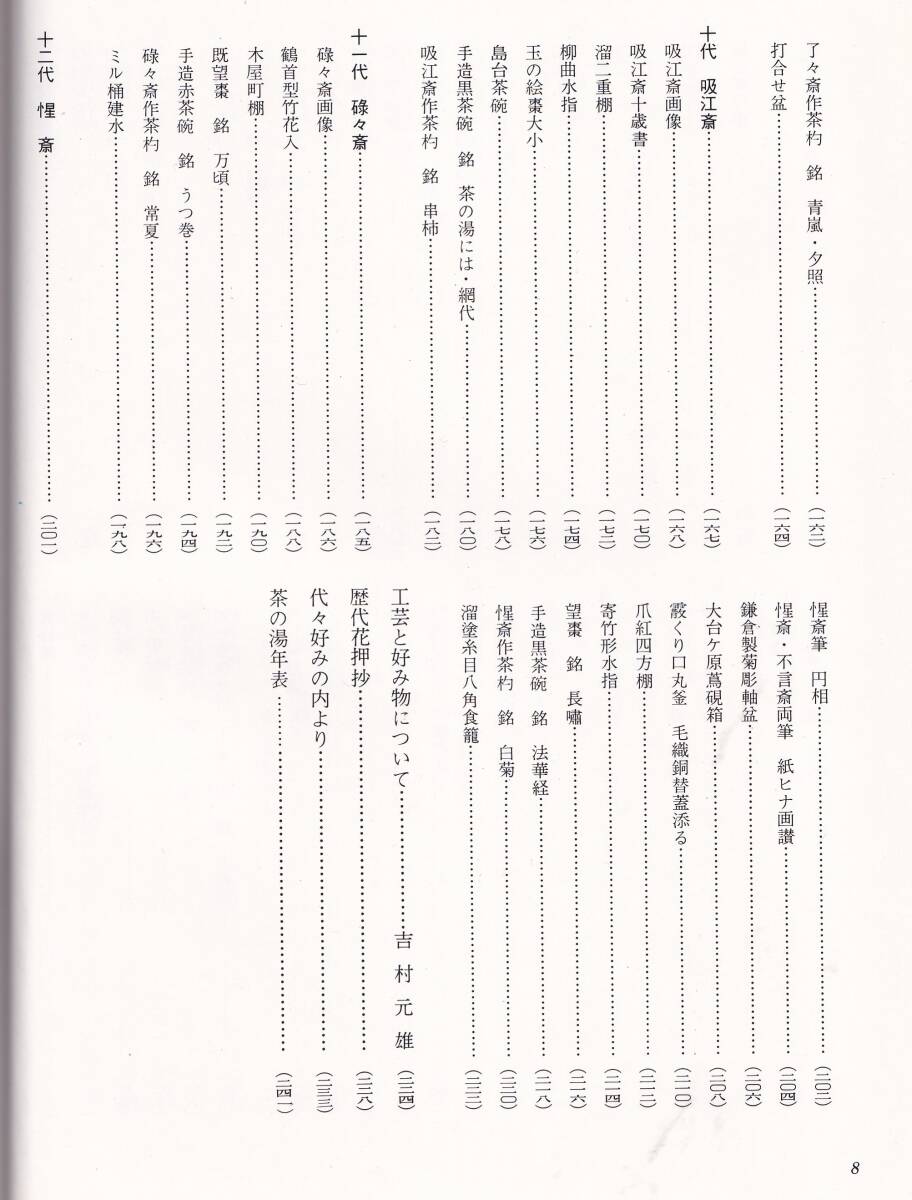 了々斎作茶杓　銘　青嵐・夕照……（一六二）
打合せ盆……（一六四）
十代　吸江斎……（一六七）
吸江斎画像……（一六八）
吸江斎十歳書……（一七〇）
溜二重棚……（一七二）
柳曲水指……（一七四）
玉の絵棗大小……（一七六）
島台茶碗……（一七八）
手造黒茶碗　銘　茶の湯には・網代……（一八〇）
吸江斎作茶杓　銘　串柿……（一八二）
十一代　碌々斎……（一八五）
碌々斎画像……（一八六）
鶴首型竹花入……（一八八）
木屋町棚……（一九〇）
既望棗　銘　万頃……（一九二）
手造赤茶碗　銘　うつ巻……（一九四）
碌々斎作茶杓　銘　常夏……（一九六）
ミル桶建水……（一九八）
十二代　惺斎……（二〇一）
惺斎筆　円相……（二〇二）
惺斎・不言斎両筆　紙ヒナ画讃……（二〇四）
鎌倉製菊彫軸盆……（二〇六）
大台ケ原蔦硯箱……（二〇八）
霰くり口丸釜　毛織銅替蓋添る……（二一〇）
爪紅四方棚……（二一二）
寄竹形水指……（二一四）
望棗　銘　長嘯……（二一六）
手造黒茶碗　銘　法華経……（二一八）
惺斎作茶杓　銘　白菊……（二二〇）
溜塗糸目八角食籠……（二二二）
工芸と好み物について……吉村元雄（二二四）
歴代花押抄……（二二八）
代々好みの内より……（二三三）
茶の湯年表……（二四一）
8